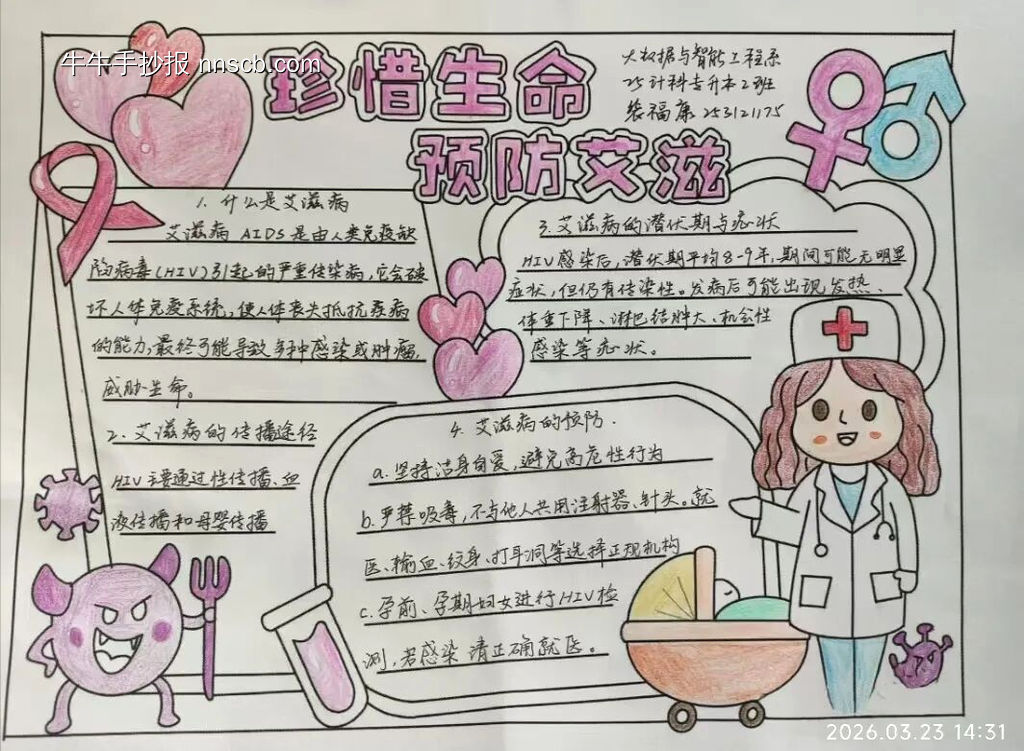 牛牛手抄报 nnscb.com
珍惜生命
预防艾滋
大数据与智能工程系
25计科专升本2班
裴福康 253121175
1. 什么是艾滋病
艾滋病 AIDS 是由人类免疫缺
陷病毒(HIV)引起的严重传染病,它会破
坏人体免疫系统,使人体丧失抵抗疾病
的能力,最终可能导致多种感染或肿瘤,
威胁生命。
2. 艾滋病的传播途径
HIV主要通过性传播、血
液传播和母婴传播
3. 艾滋病的潜伏期与症状
HIV感染后,潜伏期平均8-9年,期间可能无明显
症状,但仍有传染性。发病后可能出现发热、
体重下降、淋巴结肿大、机会性
感染等症状。
4. 艾滋病的预防.
a. 坚持洁身自爱,避免高危性行为
b. 严禁吸毒,不与他人共用注射器、针头。就
医、输血、纹身、打耳洞等选择正规机构
c. 孕前、孕期妇女进行HIV检
测,若感染请正确就医。
2026.03.23 14:31